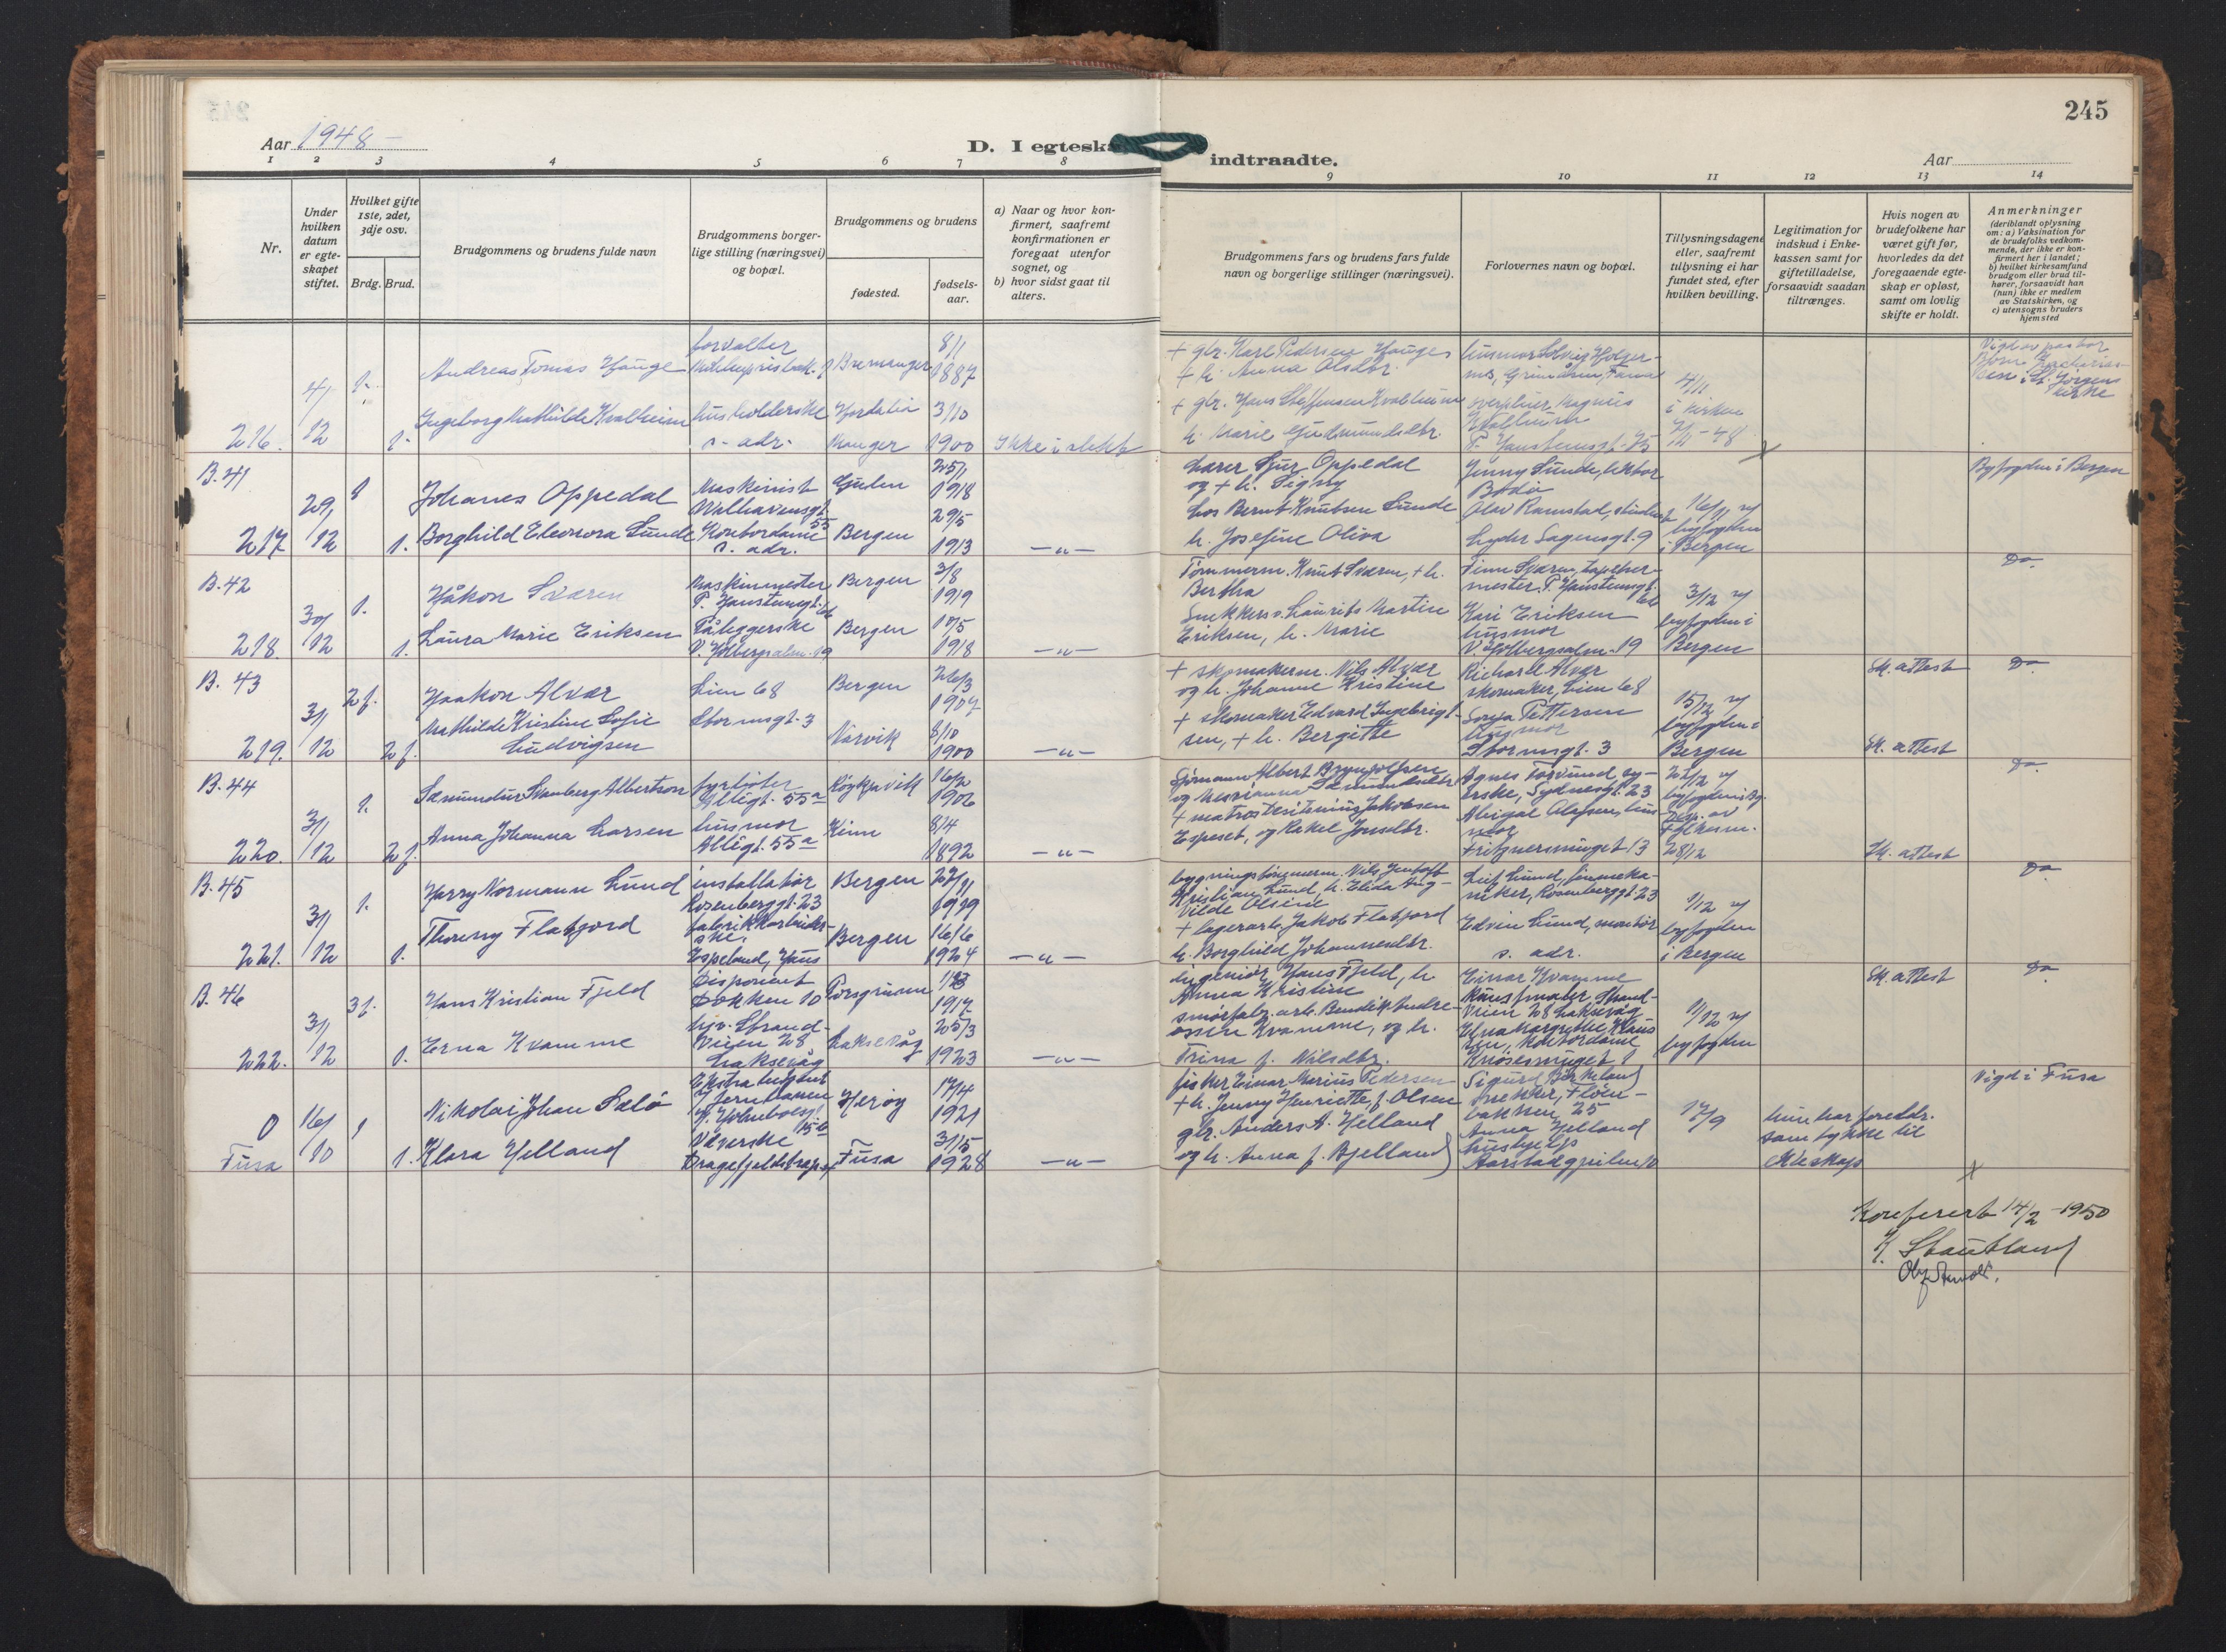 245
Aar 1948 –
D. I egteska
indtraadte.
Aar
1 2 3 4 5 6 7 8 9 10 11 12 13 14
Nr.
Under hvilken datum er egteskapet stiftet.
Hvilket gifte 1ste, 2det, 3dje osv.
Brdg. Brud.
Brudgommens og brudens fulde navn
Brudgommens borgerlige stilling (næringsvei) og bopæl.
Brudgommens og brudens
fødested.
fødselsaar.
a) Naar og hvor konfirmert, saafremt konfirmationen er foregaat utenfor sognet, og
b) hvor sidst gaat til alters.
Brudgommens fars og brudens fars fulde navn og borgerlige stillinger (næringsvei).
Forlovernes navn og bopæl.
Tillysningsdagene eller, saafremt tulysning ei har fundet sted, efter hvilken bevilling.
Legitimation for indskud i Enkekassen samt for giftetilladelse, forsaavidt saadan tiltrænges.
Hvis nogen av brudefolkene har været gift før, hvorledes da det foregaaende egteskap er opløst, samt om lovlig skifte er holdt.
Anmerkninger (deriblandt oplysning om: a) Vaksination for de brudefolks vedkommende, der ikke er konfirmert her i landet; b) hvilket kirkesamfund brudgom eller brud tilhører, forsaavidt han (hun) ikke er medlem av Statskirken, og c) utensogns bruders hjemsted
216.
4/12
1.
1.
Andreas Tomas Hauge
Ingeborg Mathilde Kvalheim
forvalter
husholderske
s. adr.
Bremanger
Hordabø
Manger
8/1
1887
3/10
1900
Ikke i slekt
+ gbr. Karl Pedersen Hauges
+ h. Anna Olsdtr.
+ gbr. Hans Steffensen Kvalheim
h. Marie Gudmundsdtr.
husmor Solveig
Magnus
Kvalheim
P. Haustensgt. 75
4/11
i kirken
7/11-48
Vigd av pastor
Bjørn
i St. Jørgens
kirke
B. 41
217.
29/12
1
1.
Johanes Oppedal
Borghild Eleonora Sunde
Maskinist
Welhavensgt.
55
Kontordame
s. adr.
Gulen
Bergen
25/1
1918
29/5
1913
— " —
Lærer Sjur Oppedal
og + h. Signy
Los Bernt Knutsen Sunde
h. Josefine Oliva
Jenny Sunde, lektor
Bodø
Olav Ramstad, student
Lyder Sagensgt. 9
16/11 v/
byfogden
i Bergen
Byfogden i Bergen
B. 42
218.
30/12
1.
1.
Håkon Sværen
Laura Marie Eriksen
Maskinmester
P. Haustensgt.
Påleggerske
V. Holbergsalm. 19
Bergen
Bergen
3/8
1919
10/5
1918
— " —
Tømmerm. Knut Sværen, + h.
Bertha
Snekkers. Laurits Martin
Eriksen, h. Marie
Finn Sværen, tapetser-
mester, P. Haustensgt.
Kari Eriksen
husmor
V. Holbergsalm. 19
3/12 v/
byfogden i
Bergen
Do.
B. 43
219.
31/12
2 f.
2 f.
Haakon Alvær
Mathilde Kristine Sofie
Ludvigsen
Lien 68
Stormsgt. 3
Bergen
Narvik
26/3
1907
8/10
1900
— " —
+ skomakerm. Nils Alvær
og h. Johanne Kristine
+ skomaker Edvard Ingebrigt-
sen, + h. Bergitte
Richard Alvær
skomaker, Lien 68
Sonja Pettersen
husmor
Stormsgt. 3
15/12 v/
byfogden i
Bergen
Sk. attest
Sk. attest
Do
B. 44
220.
31/12
1.
2 f.
Sæmundur Svanberg Albertson
Anna Johanna Larsen
fyrbøter
Allégt. 55a
husmor
Allégt. 55a
Røykjavik
Kinn
16/2
1906
8/4
1892
— " —
Sjømann Albert Brynjolfsen
og Messiana Sæmundsdtr
+ matros
Espeset, og Rakel Jonsdtr.
Agnes Torvund, sy-
erske, Sydnesgt. 23
Abigal Olafsen, hus-
mor
Fritznersmuget 13
22/12 v/
byfogden i Bg.
Disp. av
Fylkesm.
28/12
Sk. attest
Do
B. 45
221.
31/12
1.
1.
Harry Normann Lund
Thorny Flatjord
installatør
Rosenberggt. 23
fabrikkarbeider-
ske,
Espeland, Haus
Bergen
Bergen
1919
16/6
1924
— " —
bygningssnekkerm. Nils Jentoft
Kristian Lund, h. Elida Aug-
vilde Olsine
+ lagerarb. Jakob Flatjord
h. Borghild Johannesdtr.
Leif Lund, finmeka-
niker, Rosenberggt. 23
Edvin Lund, montør
s. adr.
1/12 v/
byfogden
i Bergen
Do
B. 46
222.
31/12
3 f.
1.
Hans Kristian Fjeld
Erna Kvamme
Disponent
Dokken 10
hjv. Strand-
veien 28
Laksevåg
Porsgrunn
Laksevåg
1917
25/3
1923
— " —
ingeniør Hans Fjeld, h.
Anna Kristine
smørfabr. arb. Bendik Andre-
assen Kvamme, og h.
Trina f. Nilsdtr.
Einar Kvamme
kunstmaler, Strand-
veien 28 Laksevåg
Edna Margrethe Klaus
sen, kontordame
Knøsesmuget 1
1/12 v/
byfogden
Sk. attest
Do
0
Fusa
16/10
1
1.
Nikolai Johan Sælø
Klara Helland
Ekstra betjent
v/ Jernbanen
M. Holmboesgt.
15b
Veverske
Dragefjeldstrapp.
Herøy
Fusa
17/4
1921
31/5
1928
— " —
fisker Einar Marius Pedersen
+ h. Jenny Henriette, f. Olsen
gbr. Anders A. Helland
og h. Anna f. Bjelland
Sigurd Bjørkeland
snekker, Fløen-
bakken 25
Anna Helland
hushjelp
Aarstadgjeilen 10
17/9
hun har foreldr.
samtykke til
ekteskap
Vigd i Fusa
Konferert 14/2 – 1950
K. Stautland